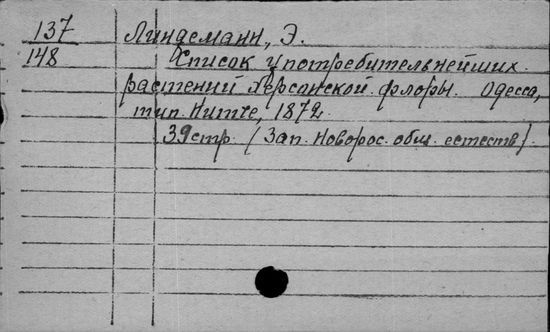 137 Линдеманн, Э.
148 Список употребительнейших
растений Херсонской флоры. Одесса,
тип. Нитче, 1872.
39 стр. (Зап. Новорос. общ. естеств).